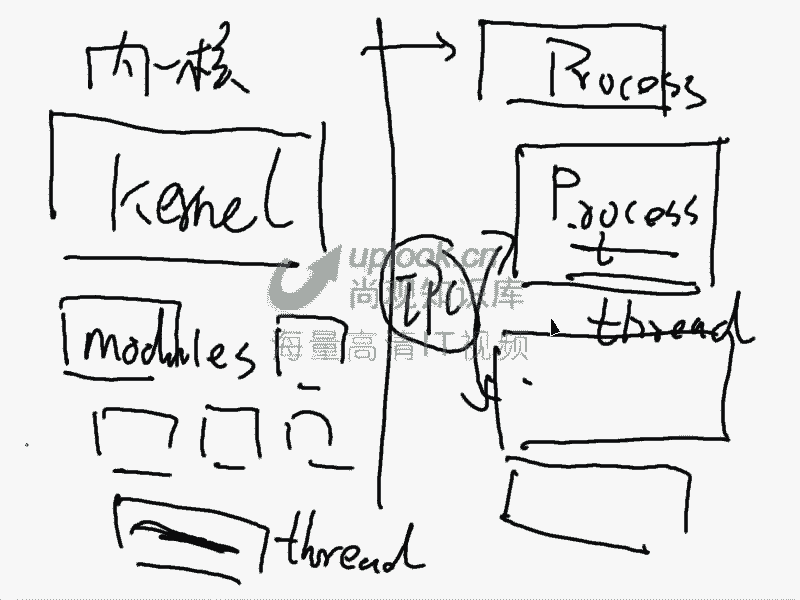 内一核
Kernel
modules
thread
Process
Process
t
thread
IPC
uplook.cn
尚观知识库
海量高清IT视频